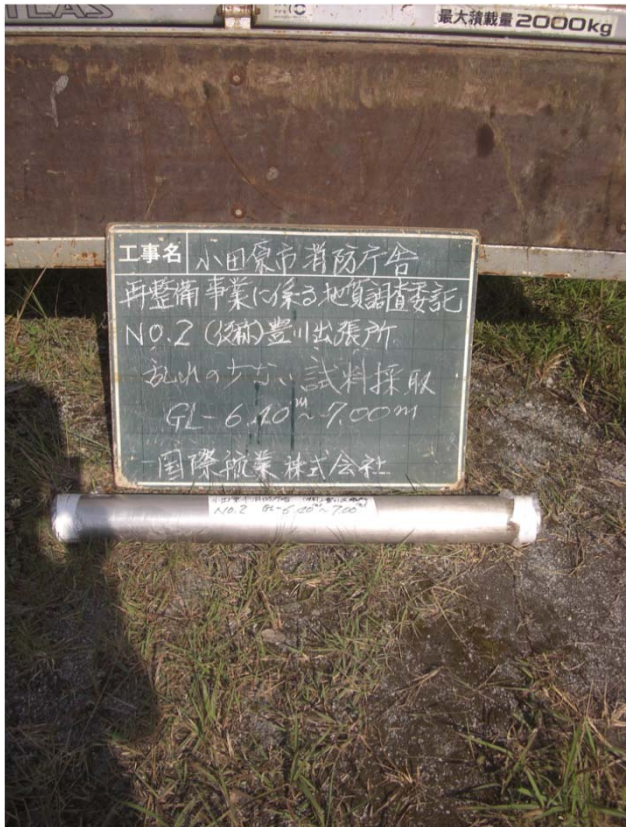 TLAS
最大積載量2000kg
工事名 小田原市消防庁舎
再整備事業に係る地質調査委託
NO.2 (仮称)豊川出張所
乱れの少ない試料採取
GL-6.10m~7.00m
国際航業株式会社
NO.2 GL-6.10m~7.00m